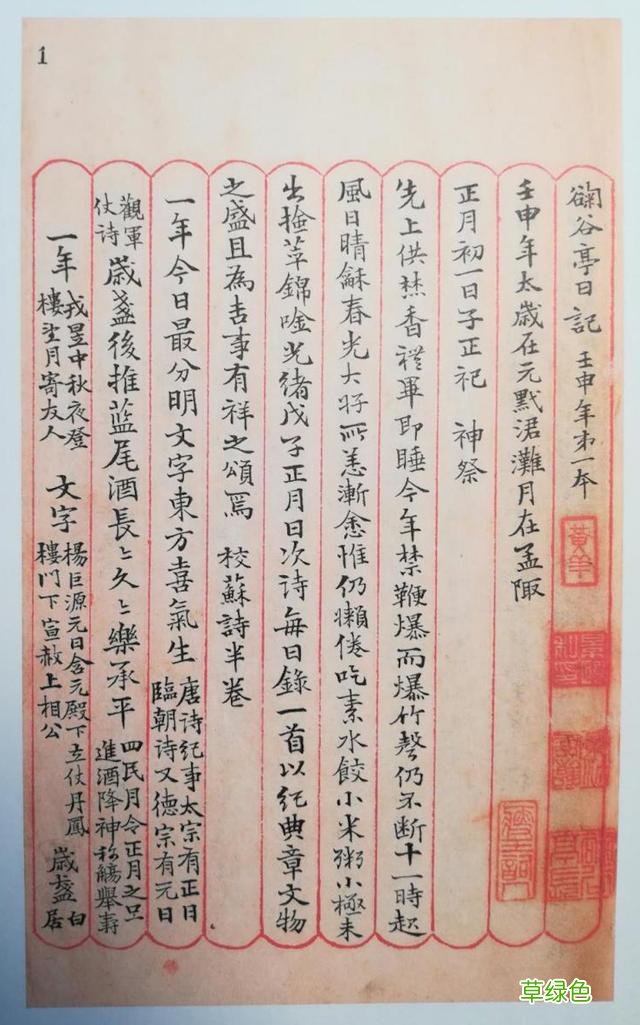 1
鞠谷亭日記 壬申年第一本
黃羊
壬申年太歲在元默涒灘月在孟陬
正月初一日子正祀 神祭
先上供焚香禮畢即睡今年禁鞭爆而爆竹聲仍不斷十一時起
風日晴龢春光大好所恙漸愈惟仍嬾倦吃素水餃小米粥小極未
出撿萃錦唫光緒戊子正月日次詩每日錄一首以紀典章文物
之盛且為吉事有祥之頌焉 校蘇詩半卷
一年今日最分明文字東方喜氣生 唐詩紀事太宗有正日臨朝詩又德宗有元日
觀軍仗詩 歲盞後推藍尾酒長〻久〻樂承平 四民月令正月之旦進酒降神称觴舉壽
一年 戎昱中秋夜登樓望月寄友人 文字 楊巨源元日含元殿下立仗丹鳳樓門下宣赦上相公 歲盞 白居
草绿色